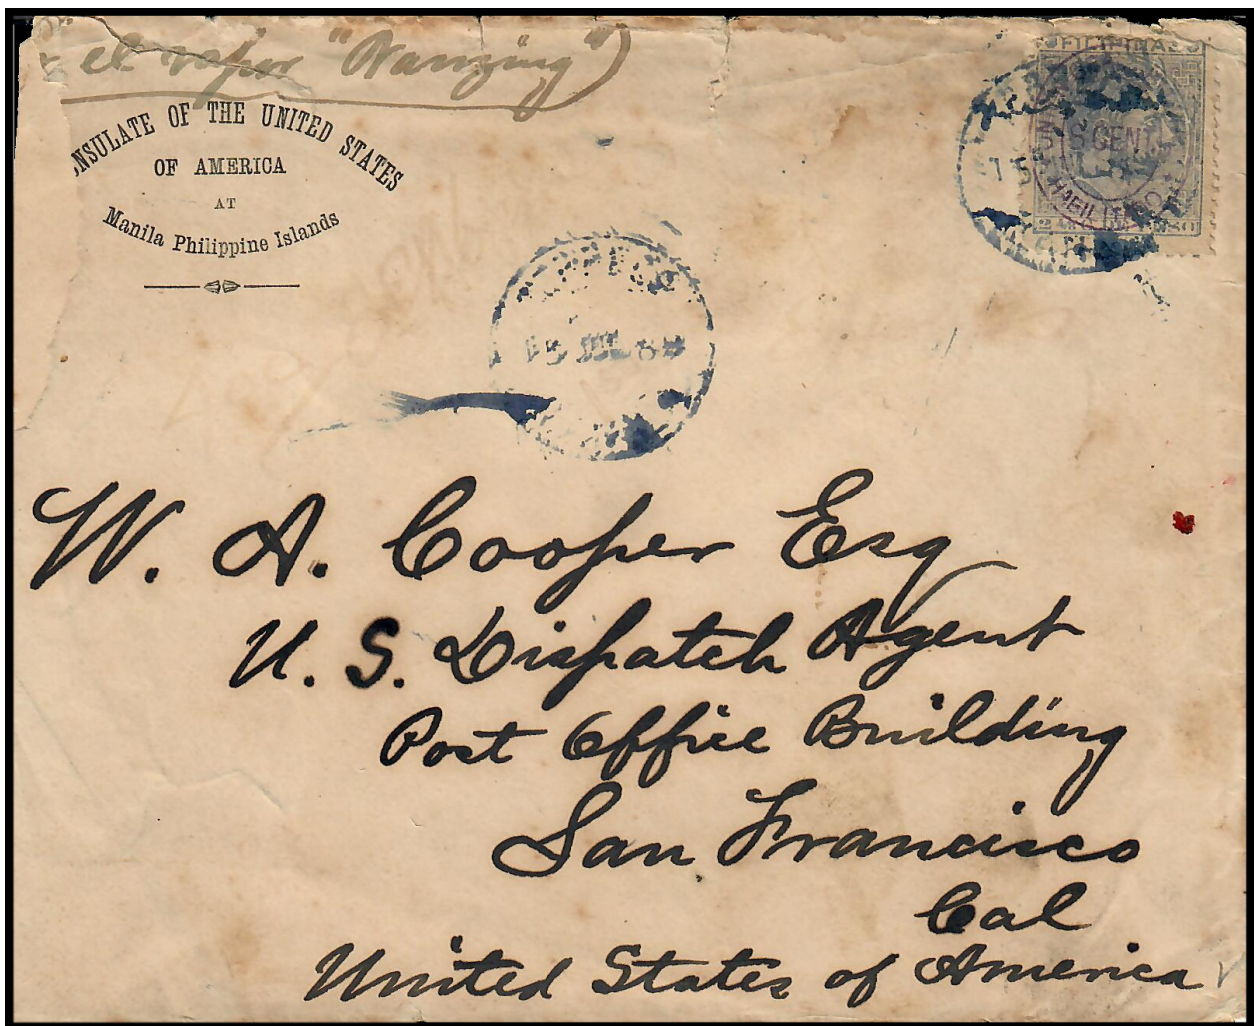 el vapor "Nanzing")
NSULATE OF THE UNITED STATES
OF AMERICA
AT
Manila Philippine Islands
FILIPINAS
8 CENT.
HABILITADO
15 JUL 8
W. A. Cooper Esq
U. S. Dispatch Agent
Post Office Building
San Francisco
Cal
United States of America